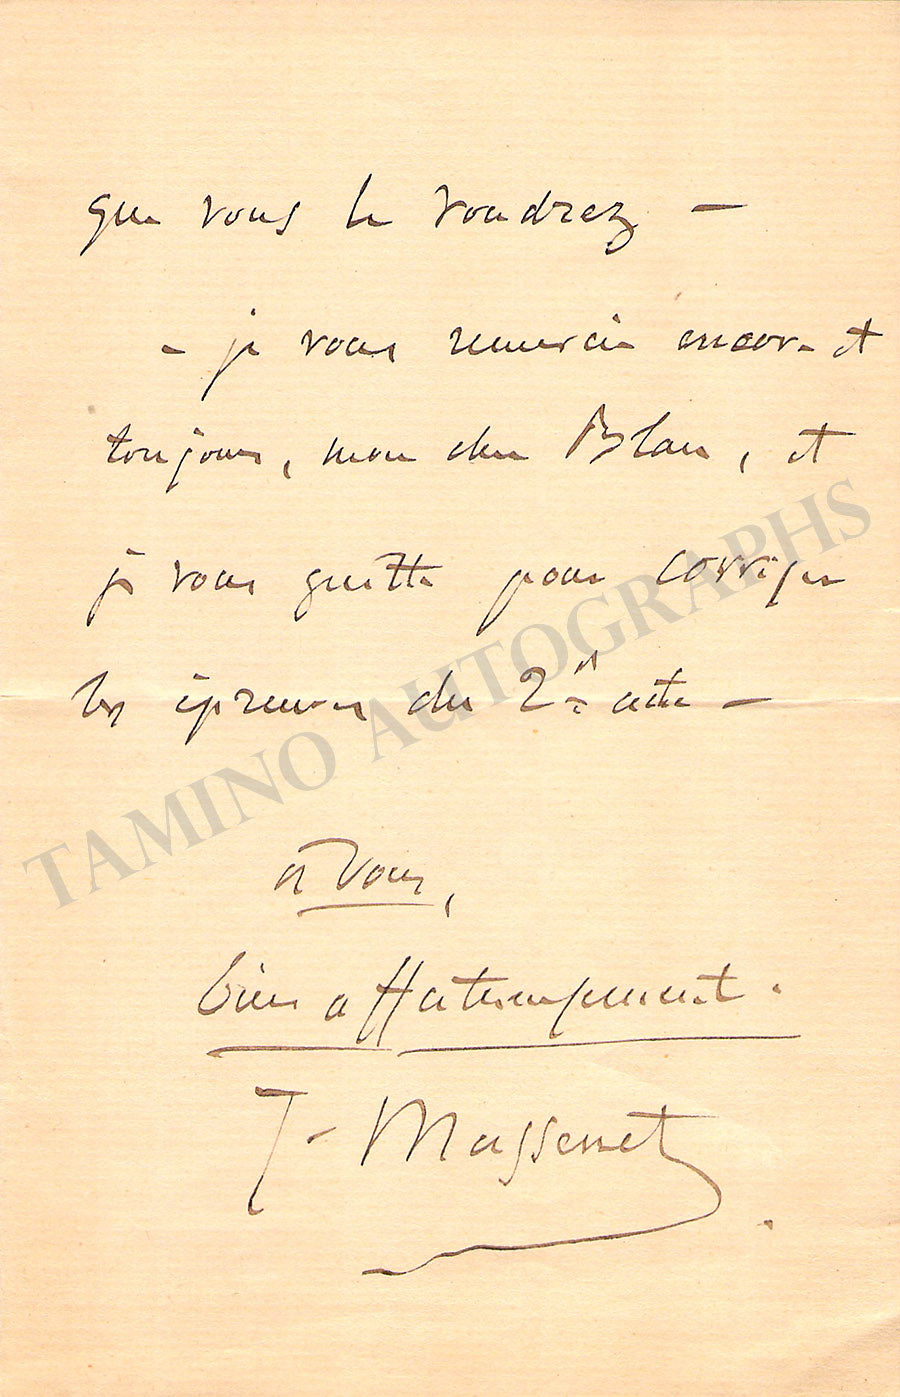 que vous le voudrez —
– je vous remercie encore et
toujours, mon cher Blau, et
je vous quitte pour corriger
les épreuves du 2e acte —
TAMINO AUTOGRAPHS
à vous,
bien affectueusement.
J. Massenet